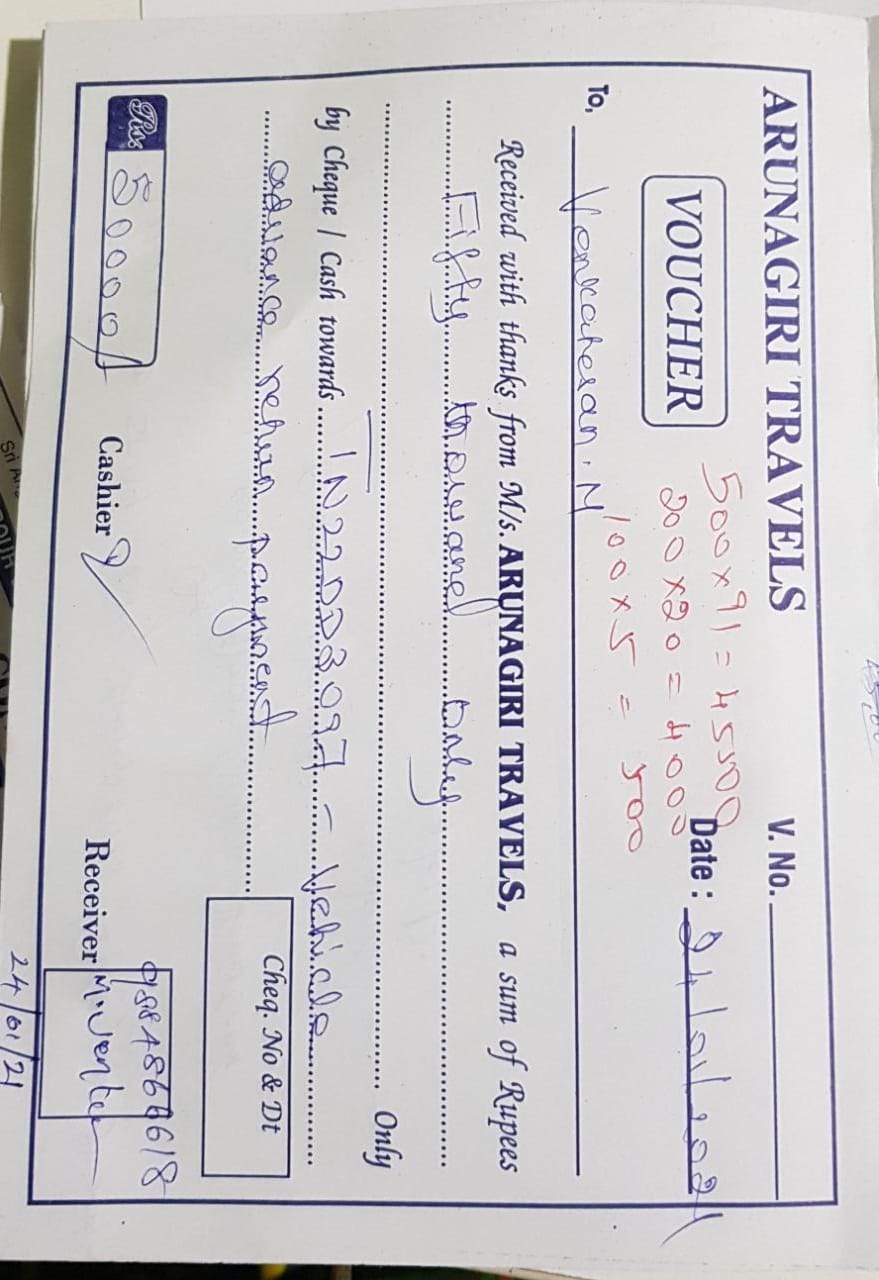 ARUNAGIRI TRAVELS
V. No.
VOUCHER
500 x 91 = 45500
200 x 20 = 4000
100 x 5 = 500
Date : 24/01/2021
To, Venkatesan. M
Received with thanks from M/s. ARUNAGIRI TRAVELS, a sum of Rupees
Fifty thousand only
Only
by Cheque / Cash towards TN22DD3097 - Vehicle
advance return payment
Cheq. No & Dt
Rs. 50000/-
Cashier
Receiver
M. Venka
24/01/21